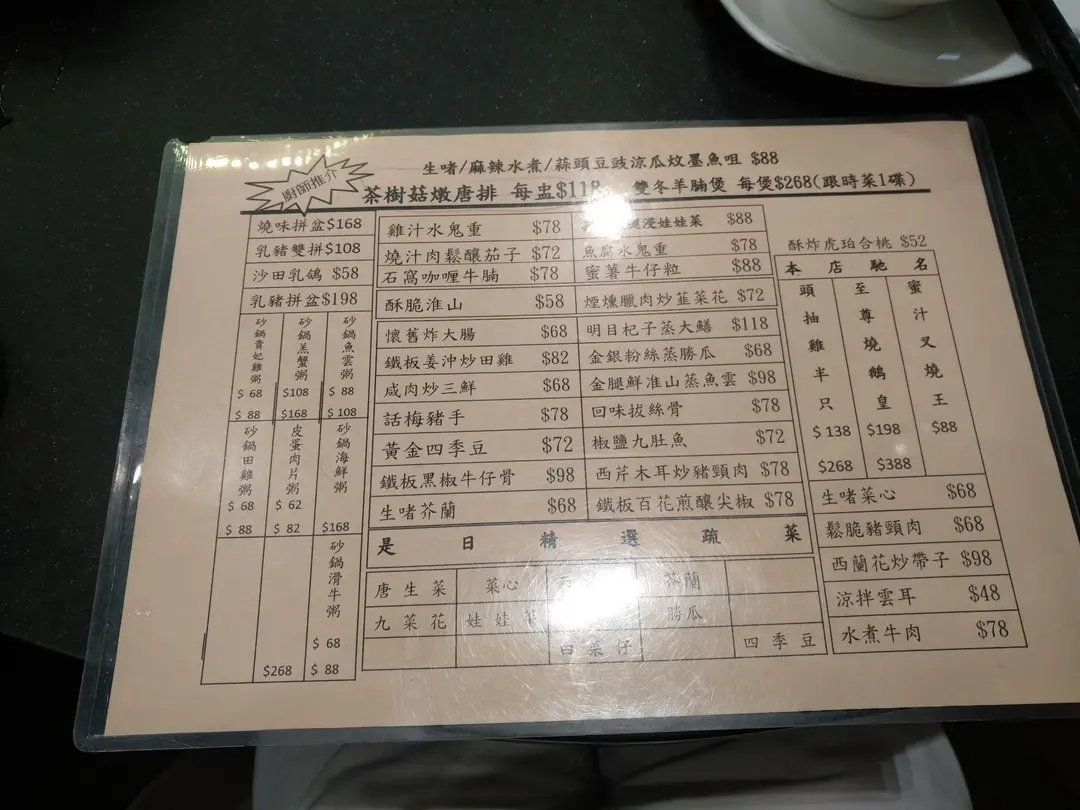 生啫/麻辣水煮/蒜頭豆豉涼瓜炆墨魚咀 $88
廚師推介
茶樹菇燉唐排 每盅$118 雙冬羊腩煲 每煲$268(跟時菜1碟)
燒味拼盆$168
乳豬雙拼$108
沙田乳鴿 $58
乳豬拼盆$198
砂鍋貴妃雞粥 $68 $88
砂鍋羔蟹粥 $108 $168
砂鍋魚雲粥 $88 $108
砂鍋田雞粥 $68 $88
皮蛋肉片粥 $62 $82
砂鍋海鮮粥 $168
$268
砂鍋滑牛粥 $68 $88
雞汁水鬼重 $78
燒汁肉鬆釀茄子 $72
石窩咖喱牛腩 $78
酥脆淮山 $58
懷舊炸大腸 $68
鐵板姜沖炒田雞 $82
咸肉炒三鮮 $68
話梅豬手 $78
黃金四季豆 $72
鐵板黑椒牛仔骨 $98
生啫芥蘭 $68
腿浸娃娃菜 $88
魚腐水鬼重 $78
蜜薯牛仔粒 $88
煙燻臘肉炒韮菜花 $72
明目杞子蒸大鱔 $118
金銀粉絲蒸勝瓜 $68
金腿鮮淮山蒸魚雲 $98
回味拔絲骨 $78
椒鹽九肚魚 $72
西芹木耳炒豬頸肉 $78
鐵板百花煎釀尖椒 $78
是日精選蔬菜
唐生菜 菜心 芥蘭
九菜花 娃娃 勝瓜
白菜仔 四季豆
酥炸虎珀合桃 $52
本店馳名
頭抽雞半只 $138 $268
至尊燒鵝皇 $198 $388
蜜汁叉燒王 $88
生啫菜心 $68
鬆脆豬頸肉 $68
西蘭花炒帶子 $98
涼拌雲耳 $48
水煮牛肉 $78